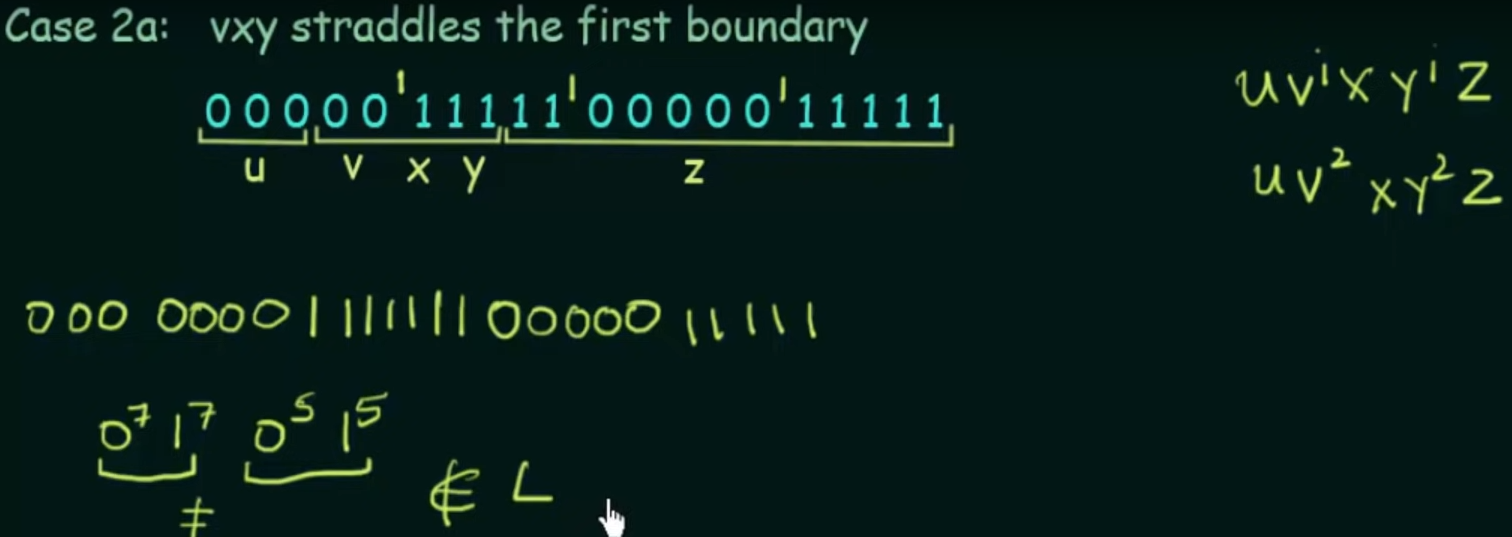 Case 2a: vxy straddles the first boundary
00000'11111'00000'11111
u v x y z
uvⁱxyⁱz
uv²xy²z
000 0000111111100000 11111
0⁷1⁷ 0⁵1⁵
≠
∉ L